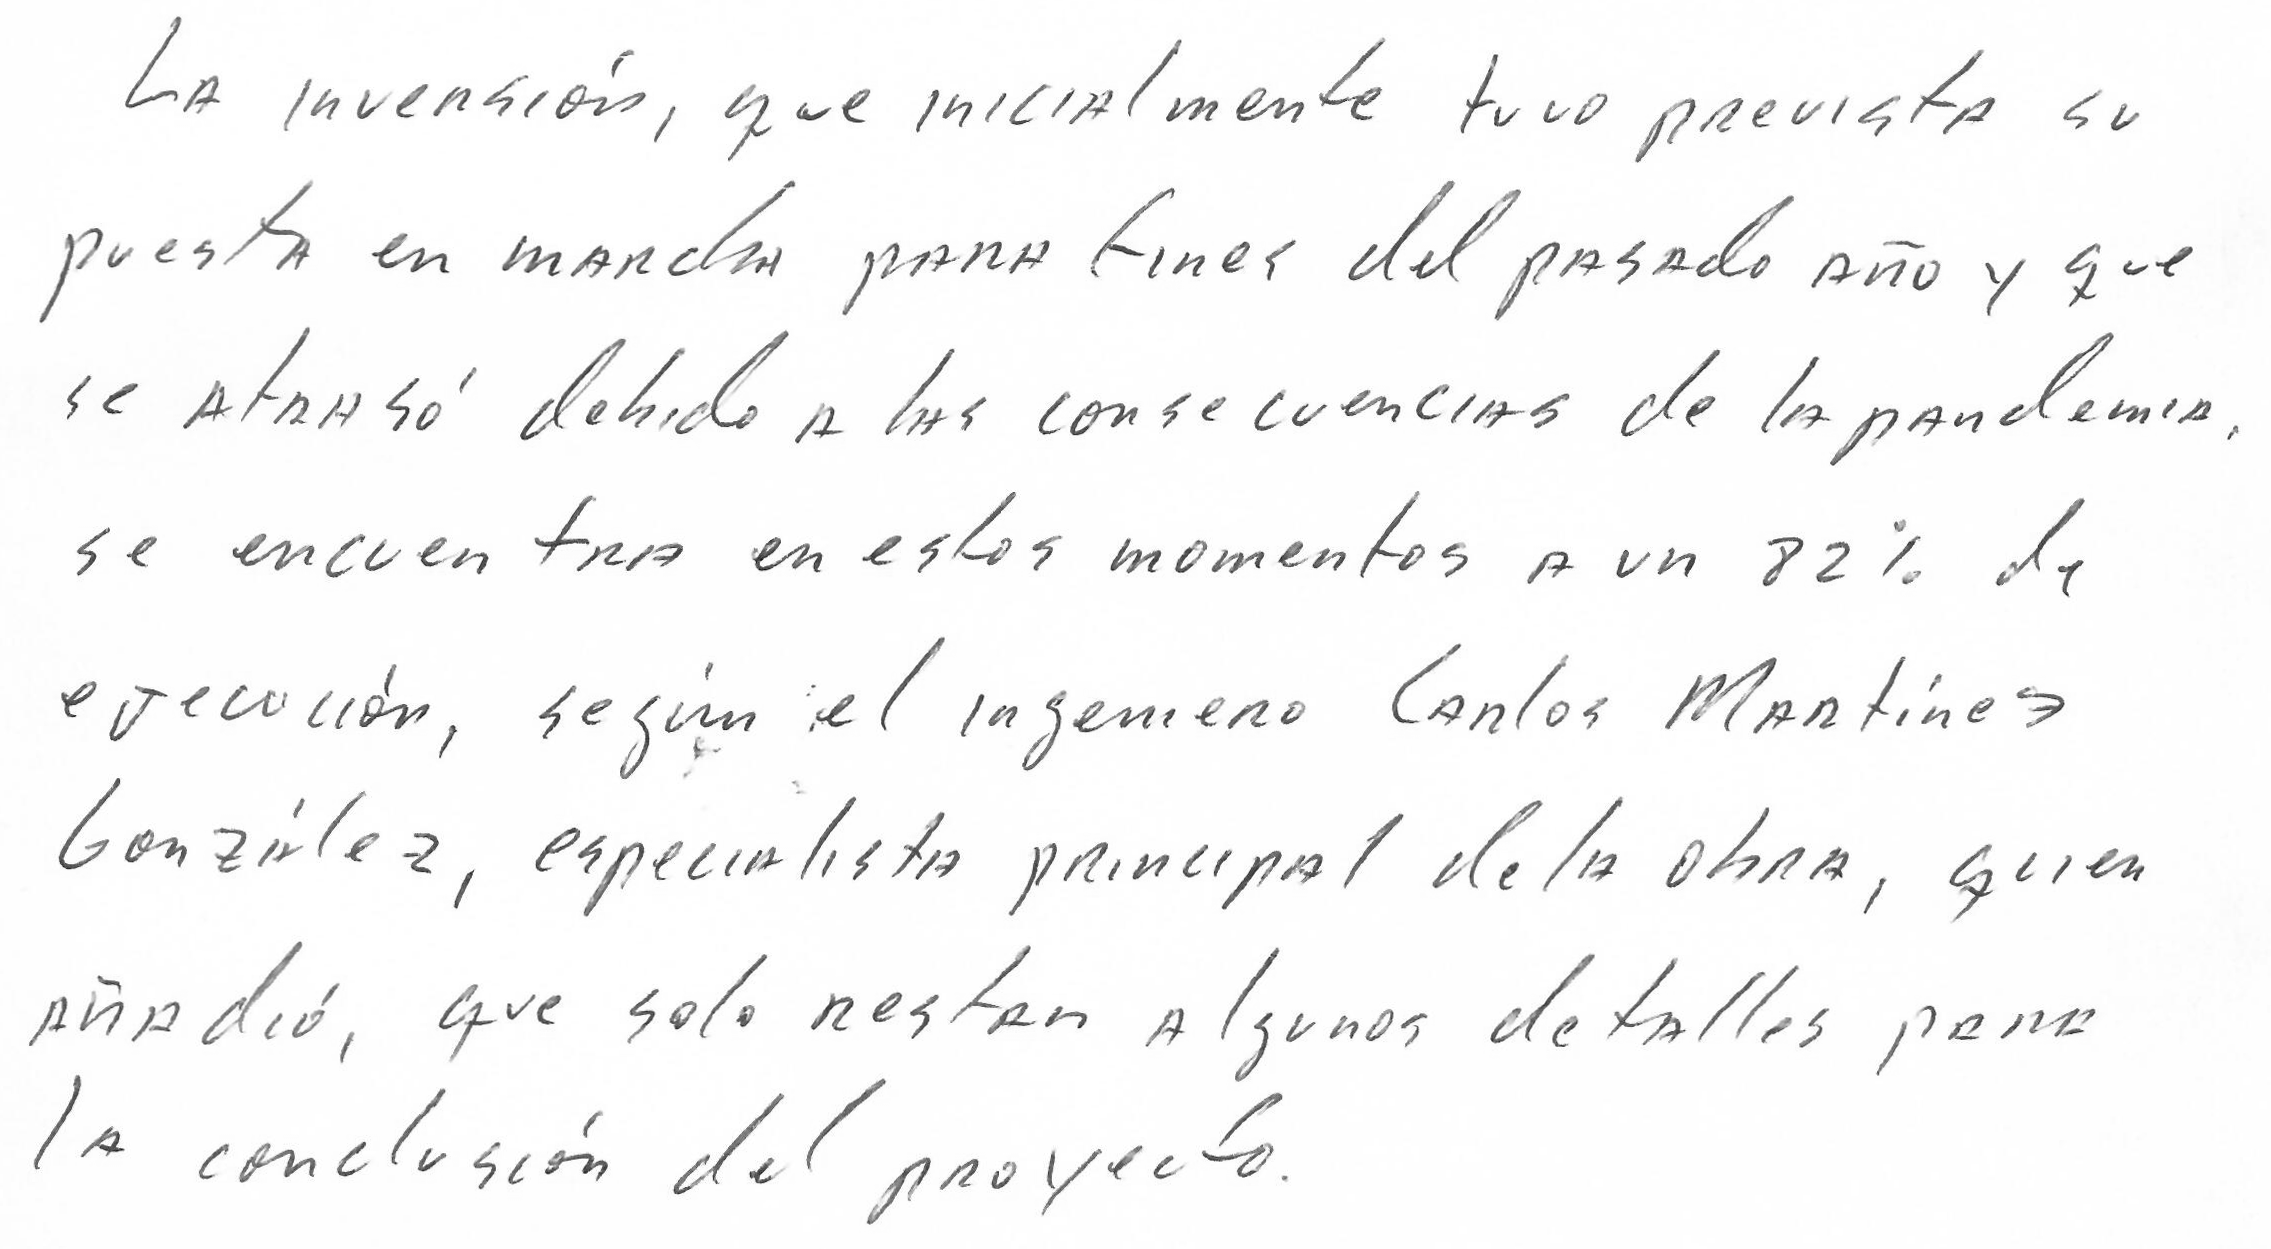 La inversión, que inicialmente tuvo prevista su
puesta en marcha para fines del pasado año y que
se atrasó debido a las consecuencias de la pandemia,
se encuentra en estos momentos a un 82% de
ejecución, según el ingeniero Carlos Martínez
González, especialista principal de la obra, quien
añadió, que solo restan algunos detalles para
la conclusión del proyecto.